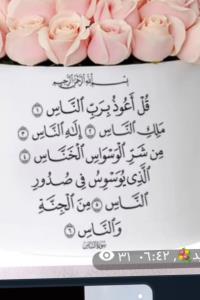 بِسْمِ اللَّهِ الرَّحْمَٰنِ الرَّحِيمِ
قُلْ أَعُوذُ بِرَبِّ النَّاسِ ١
مَلِكِ النَّاسِ ٢ إِلَٰهِ النَّاسِ ٣
مِن شَرِّ الْوَسْوَاسِ الْخَنَّاسِ ٤
الَّذِي يُوَسْوِسُ فِي صُدُورِ
النَّاسِ ٥ مِنَ الْجِنَّةِ
وَالنَّاسِ ٦
سورة الناس
٣١ ٠٦:٤٢